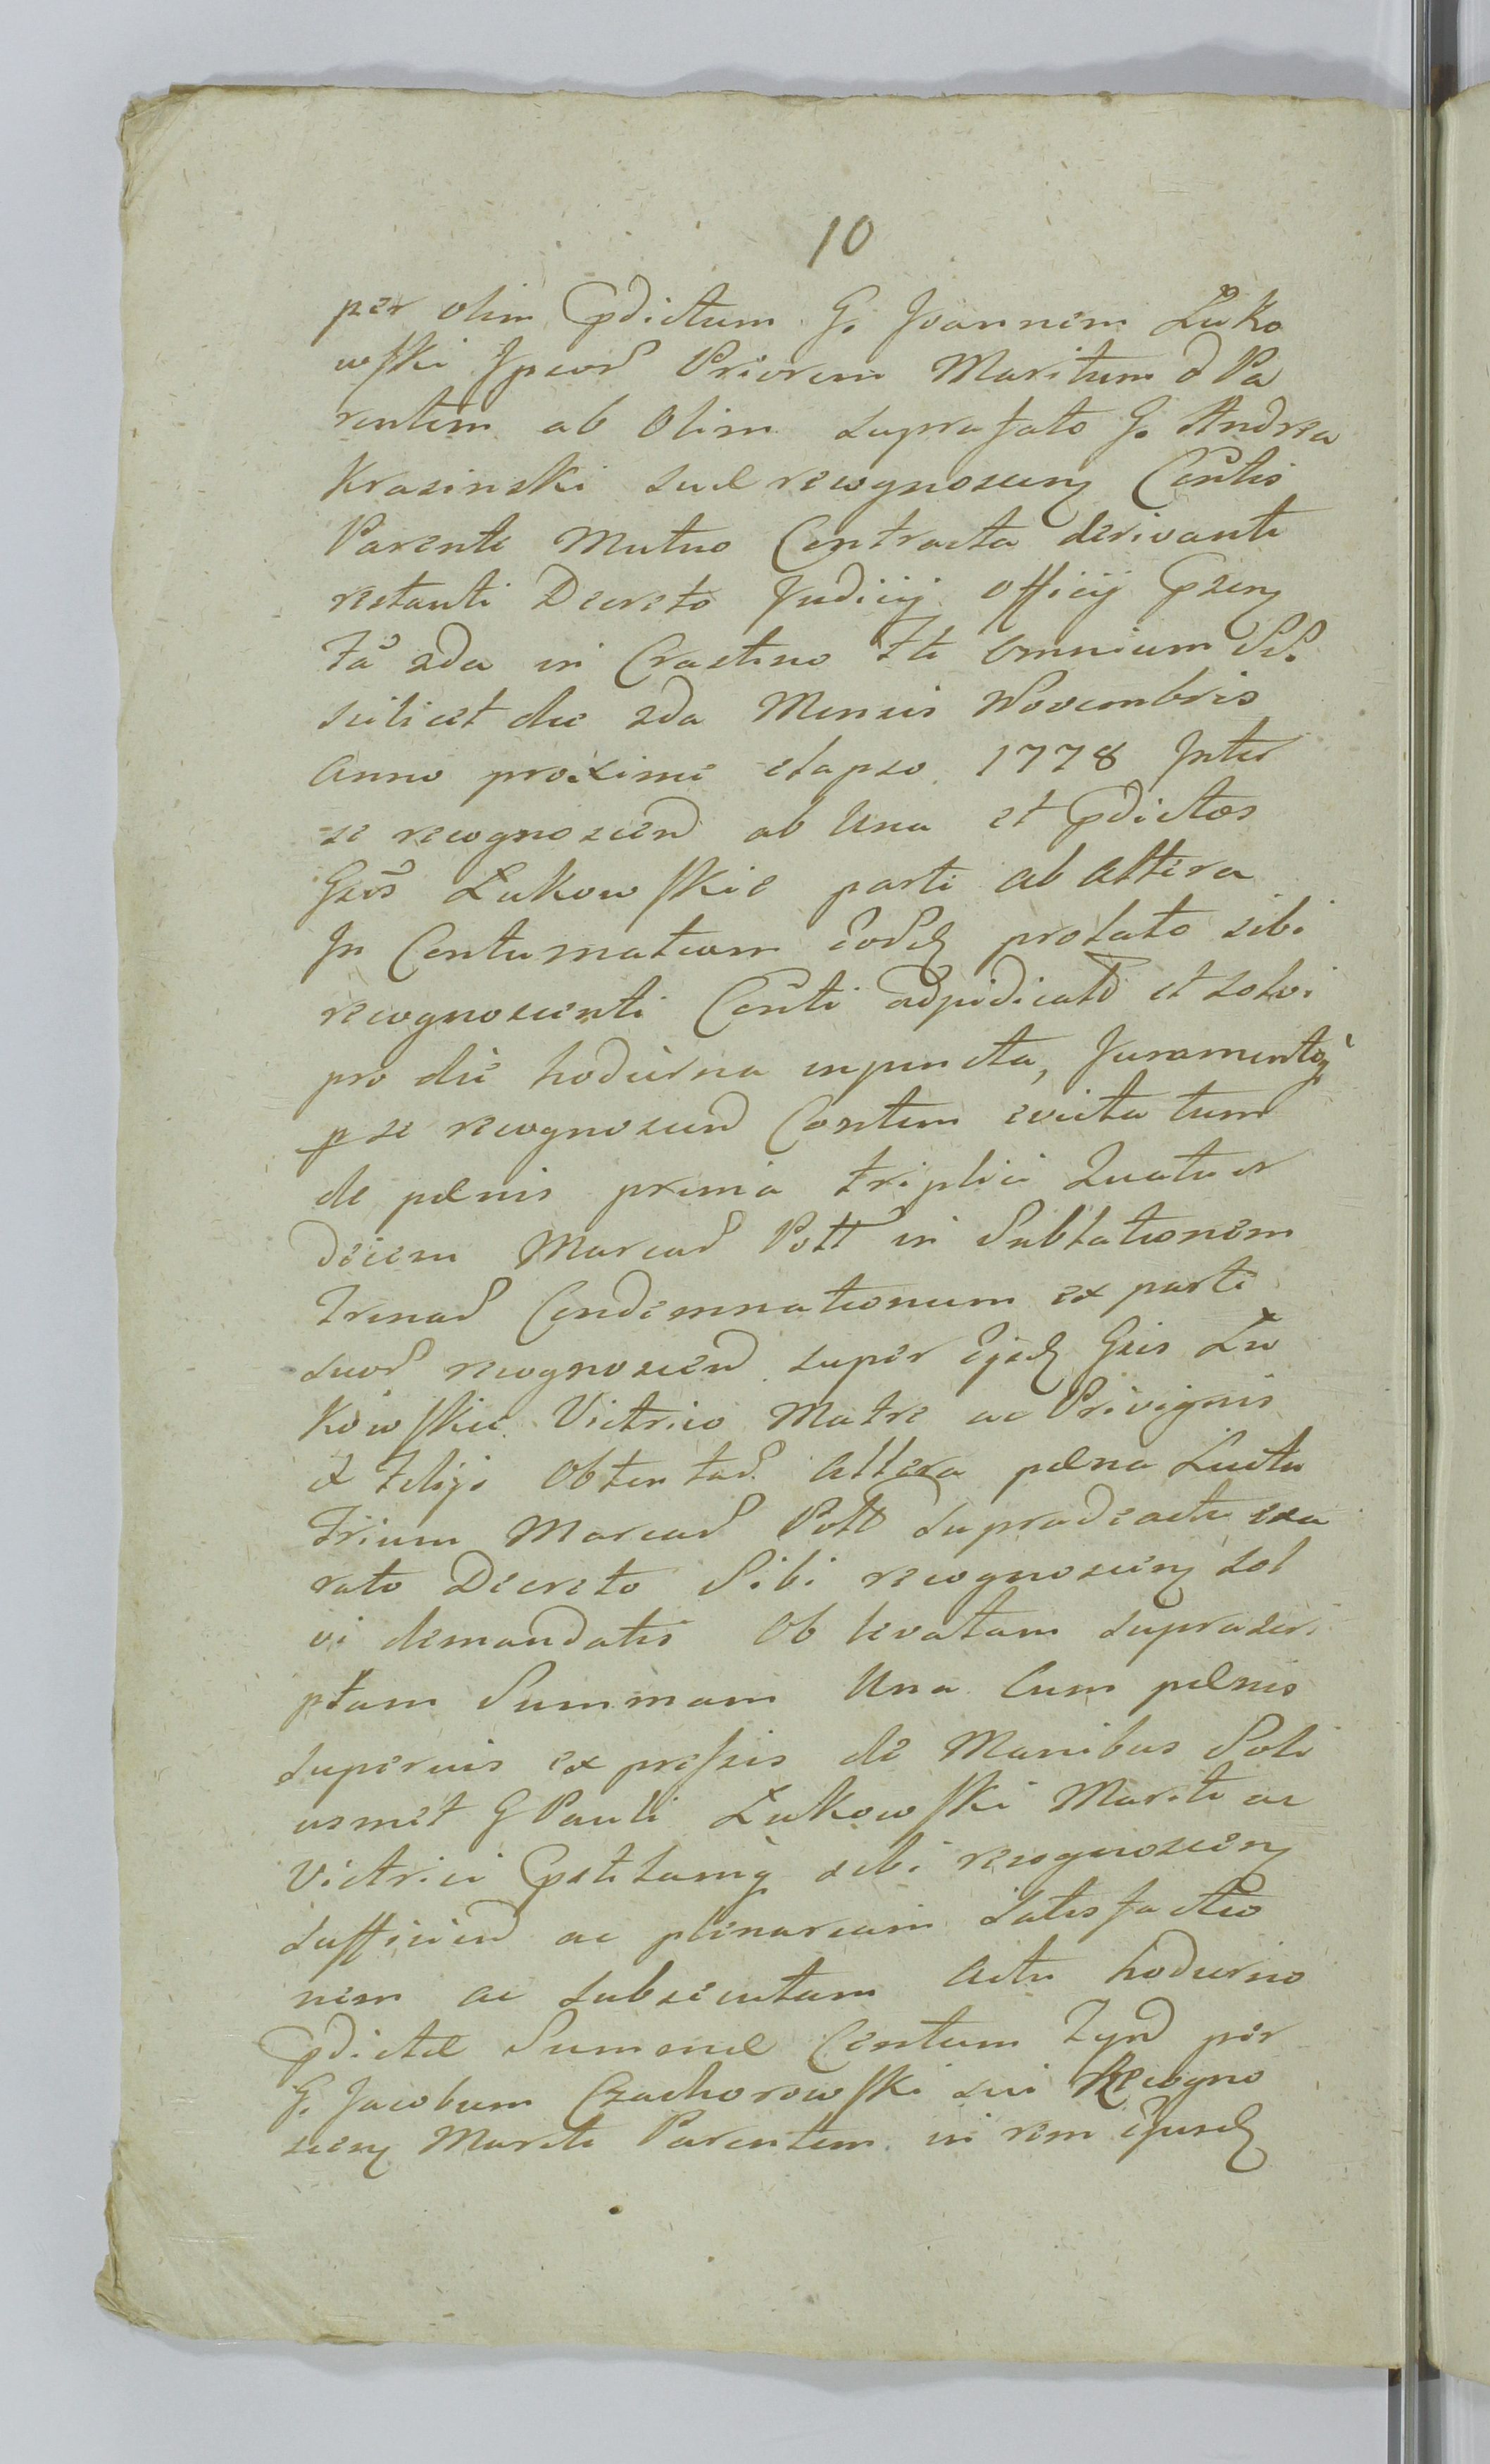 10
per olim pdictum G. Joannem Łuko
wski Ipsor Priorem Maritum & Pa
rentem ab Olim suprafato G. Andrea
Krasinski suæ recognoscenᶎ Contis
Parente Mutuo Contracta derivante
restanti Decreto Judicij officij
fa 2da in Crastino Fti Omnium SS.
scilicet die 2da Mensis Novembris
Anno proxime elapso 1778 Inter
se recognoscen ab Una et pdictos
Gsos Łukowskie parte ab altera
In Contumatiam prolato sibi
recognoscenti Conti adjudicat et solvi
pro die hodierna injuncta, Juramentoq
p se recognoscen Contem evicta tum
de pænis prima triplici Quatuor
decem Marcar Poll in Sublationem
Trinar Condemnationum ex parte
suor recognoscen super Gsis Łu
kowskie Victrico Matre ac Privignis
& Filijs Obtentar Altera pæna Luctu
Trium Marcar Poll supradicta exa
rato Decreto Sibi recognoscenᶎ sol
vi demandatis Ob levatam suprascri
ptam Summam Una Cum pænis
superius expressis de Manibus Soli
usmet G Pauli Łukowski Mariti ac
Victrici sibi recognoscenᶎ
sufficien ac plenariam satisfactio
nem ac subsecutam Actu hodierno
pdictæ Summæ Centum per
G. Jacobum Czachorowski sui Recogno
scenᶎ Mariti Parentem in rem Ejusd